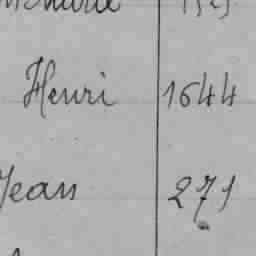 Henri 1644
Jean 271